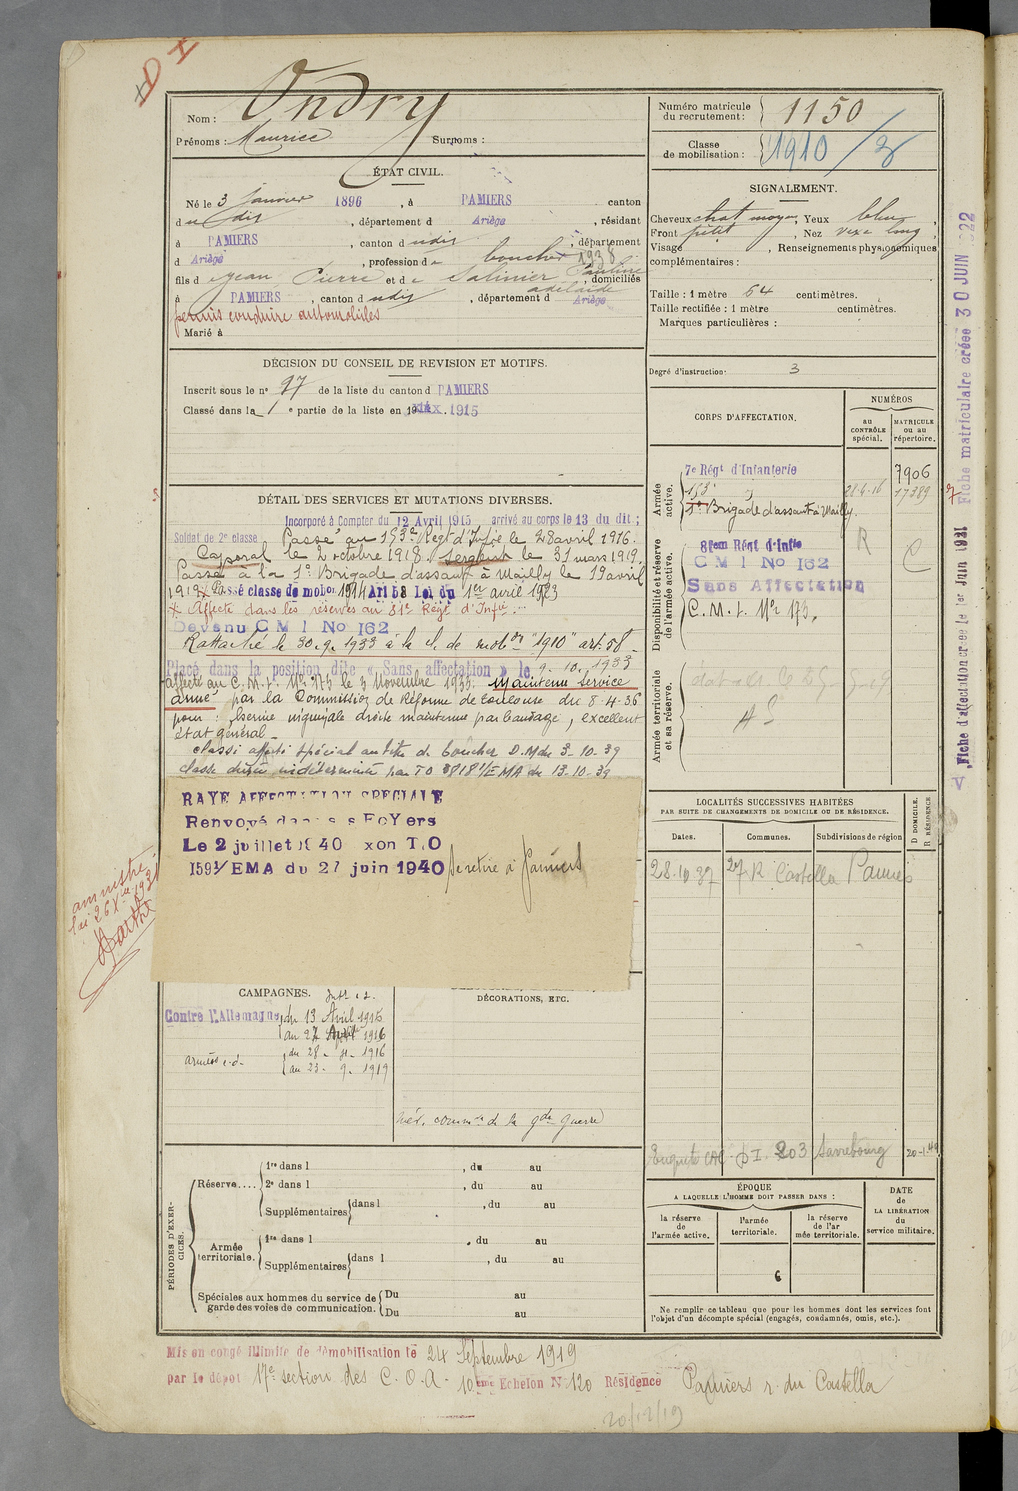 D I
Nom : Ondry
Prénoms : Maurice Surnoms :
ÉTAT CIVIL.
Né le 3 janvier 1896, à PAMIERS canton
dudis, département d Ariège, résidant
à PAMIERS, canton dudis, département
d Ariège, profession de boucher 1938
fils de Jean Pierre et de Salinier Pauline, domiciliés
adelaïde
à PAMIERS, canton dudis, département d Ariège
permis conduire automobiles
Marié à
DÉCISION DU CONSEIL DE REVISION ET MOTIFS.
Inscrit sous le n° 97 de la liste du canton d PAMIERS
Classé dans la 1e partie de la liste en 1915
DÉTAIL DES SERVICES ET MUTATIONS DIVERSES.
Incorporé à Compter du 12 Avril 1915 arrivé au corps le 13 du dit ;
Soldat de 2e classe Passé au 153e Régt d'Infie le 28 avril 1916.
Caporal le 2 octobre 1918. Sergent le 31 mars 1919.
Passé à la 1e Brigade d'assaut à Mailly le 19 avril
1919 X Passé classe de mobon 1914 Art 58 Loi du 1er avril 1923
X Affecté dans les réserves au 81e Régt d'Infie
Devenu C M I No 162
Rattaché le 30.9.1933 à la cl. de mobon "1910" art. 58
Placé dans la position dite « Sans affectation » le 9.10.1933
affecté au C.M.I. No 173 le 3 Novembre 1935. Maintenu service
armé par la Commission de Réforme de Toulouse du 8.4.36
pour : hernie inguinale droite maintenue par bandage, excellent
état général _
classé affecté spécial au titre de boucher D.M du 3-10-39
classé durée indéterminée par TO 3818 1/EMA du 13-10-39
RAYE AFFECTATION SPECIALE
Renvoyé dans ses FoYers
Le 2 juillet 1940 xon T.O
1591/EMA du 27 juin 1940 se retire à Pamiers
amnistié
loi 26 Xbre 1931
CAMPAGNES.
DÉCORATIONS, ETC.
Contre l'Allemagne, du 13 Avril 1915
au 27 Avril 1916
armées du 28 - 4 - 1916
au 23 - 9 - 1919
Méd. comm. de la gde guerre
PÉRIODES D'EXERCICES.
Réserve.... 1re dans l , du au
2e dans l , du au
Supplémentaires dans l , du au
Armée territoriale. 1re dans l , du au
Supplémentaires dans l , du au
Spéciales aux hommes du service de garde des voies de communication. Du au
Du au
Mis en congé illimité de démobilisation le 24 Septembre 1919
par le dépôt 17e section des C.O.A. 10eme Echelon N° 120 Résidence Pamiers r. du Castella
20/12/19
Numéro matricule du recrutement : 1150
Classe de mobilisation : 1910/2
SIGNALEMENT.
Cheveux chat moyen, Yeux bleus,
Front petit, Nez vexe long,
Visage , Renseignements physionomiques
complémentaires :
Taille : 1 mètre 64 centimètres.
Taille rectifiée : 1 mètre centimètres.
Marques particulières :
Degré d'instruction : 3
CORPS D'AFFECTATION.
NUMÉROS
AU CONTRÔLE spécial.
MATRICULE OU AU répertoire.
Armée active.
7e Régt d'Infanterie 7906
153e 28-4-16 17389
1e Brigade d'assaut à Mailly.
Disponibilité et réserve de l'armée active.
81em Régt d'Infie R C
C M I No 162
Sans Affectation
C.M.I. No 173.
Armée territoriale et sa réserve.
AS
LOCALITÉS SUCCESSIVES HABITÉES
PAR SUITE DE CHANGEMENTS DE DOMICILE OU DE RÉSIDENCE.
Dates. Communes. Subdivisions de région D DOMICILE. R RÉSIDENCE
28.10.37 27 R Castella Pamiers
203 Sarrebourg 20-1-49
ÉPOQUE
A LAQUELLE L'HOMME DOIT PASSER DANS :
la réserve de l'armée active.
l'armée territoriale.
la réserve de l'armée territoriale.
DATE de LA LIBÉRATION du service militaire.
6
Ne remplir ce tableau que pour les hommes dont les services font
l'objet d'un décompte spécial (engagés, condamnés, omis, etc.).
Fiche matriculaire créée 30 JUIN 1922
Fiche d'affectation créée le 1er Juin 1921